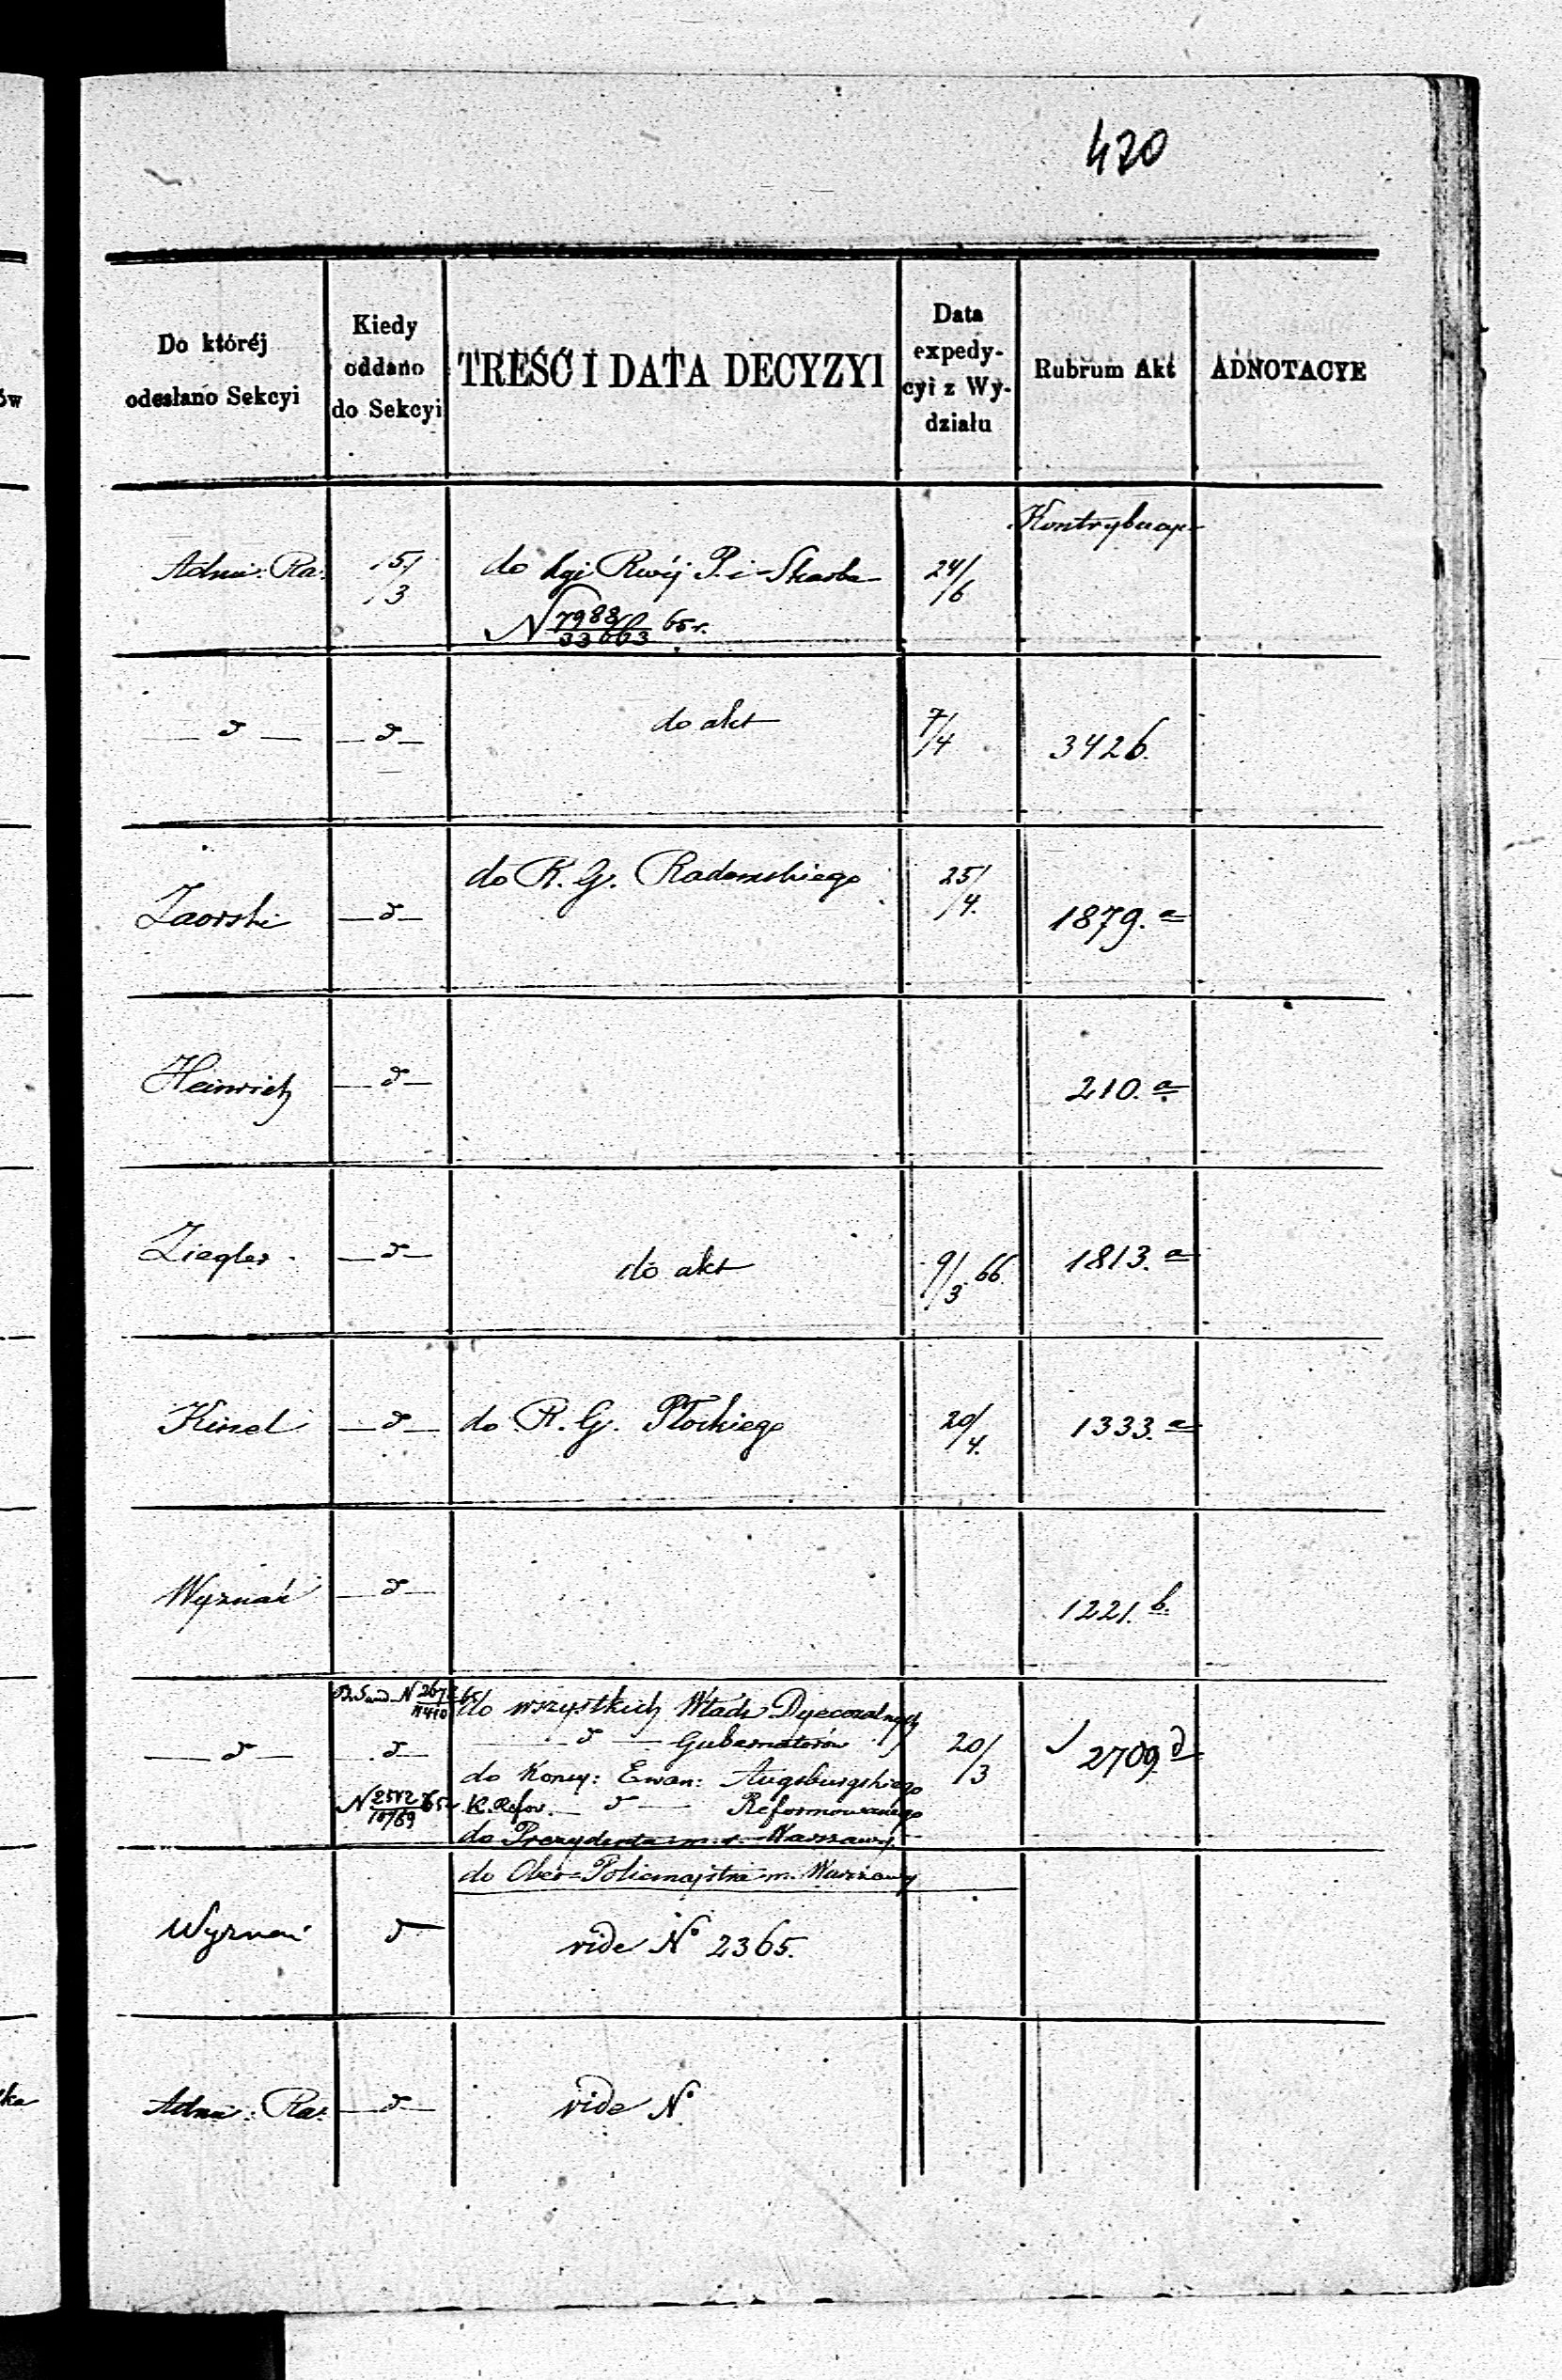 420
Do któréj odesłano Sekcyi
Kiedy oddano do Sekcyi
TREŚĆ I DATA DECYZYI
Data expedycyi z Wydziału
Rubrum Akt
ADNOTACYE
Kontrybucye
Adm: Ra: 15/3 do Kgi Rwéj P. i Skarbu 24/6
N 7988/33663 65 r.
— d — — d — do akt 7/4 3426.
Zaorski — d — do R. G. Radomskiego 25/4. 1879. a
Heinrich — d — 210. a
Ziegler — d — do akt 9/3 66. 1813. a
Kinel — d — do R. G. Płockiego 20/4. 1333. a
Wyznań — d — 1221. b.
do wszystkich Władz Dyecezalnych
— d — d — d — Gubernatorów 20/3 2709. d
do Konsy: Ewan: Augsburgskiego
K. Refor. — d — Reformowanego
do Prezydenta m. s. Warszawy
do Ober-Policmajstra m. Warszawy
Wyznań d — vide No 2365.
Adm: Ra: — d — vide No